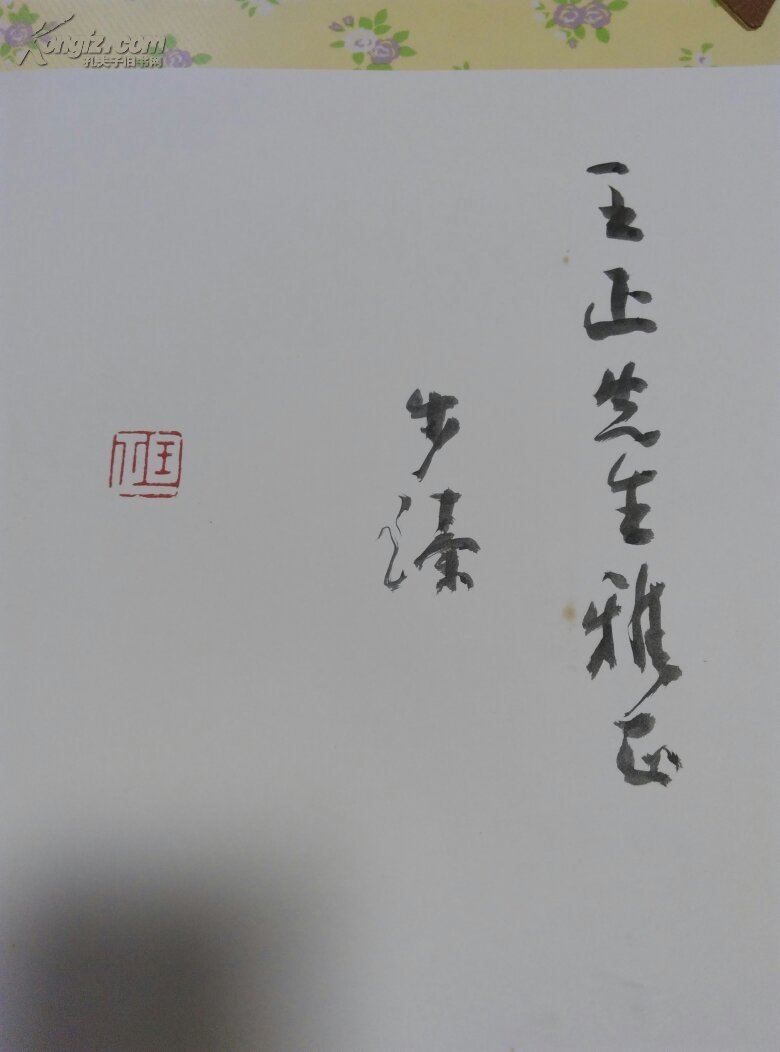 王正先生雅正
步溱
Kongfz.com
孔夫子旧书网